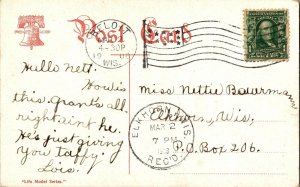 Post Card
BELOIT
4-30P
WIS.
Hello Nett.
How is
this. Grant's all
right aint he.
He's just giving
you taffy.
Lois.
Miss Nettie Bowerman
Elkhorn, Wis.
P.O. Box 206.
ELKHORN, WIS.
MAR 2
7 PM
REC'D.
"Life Model Series."